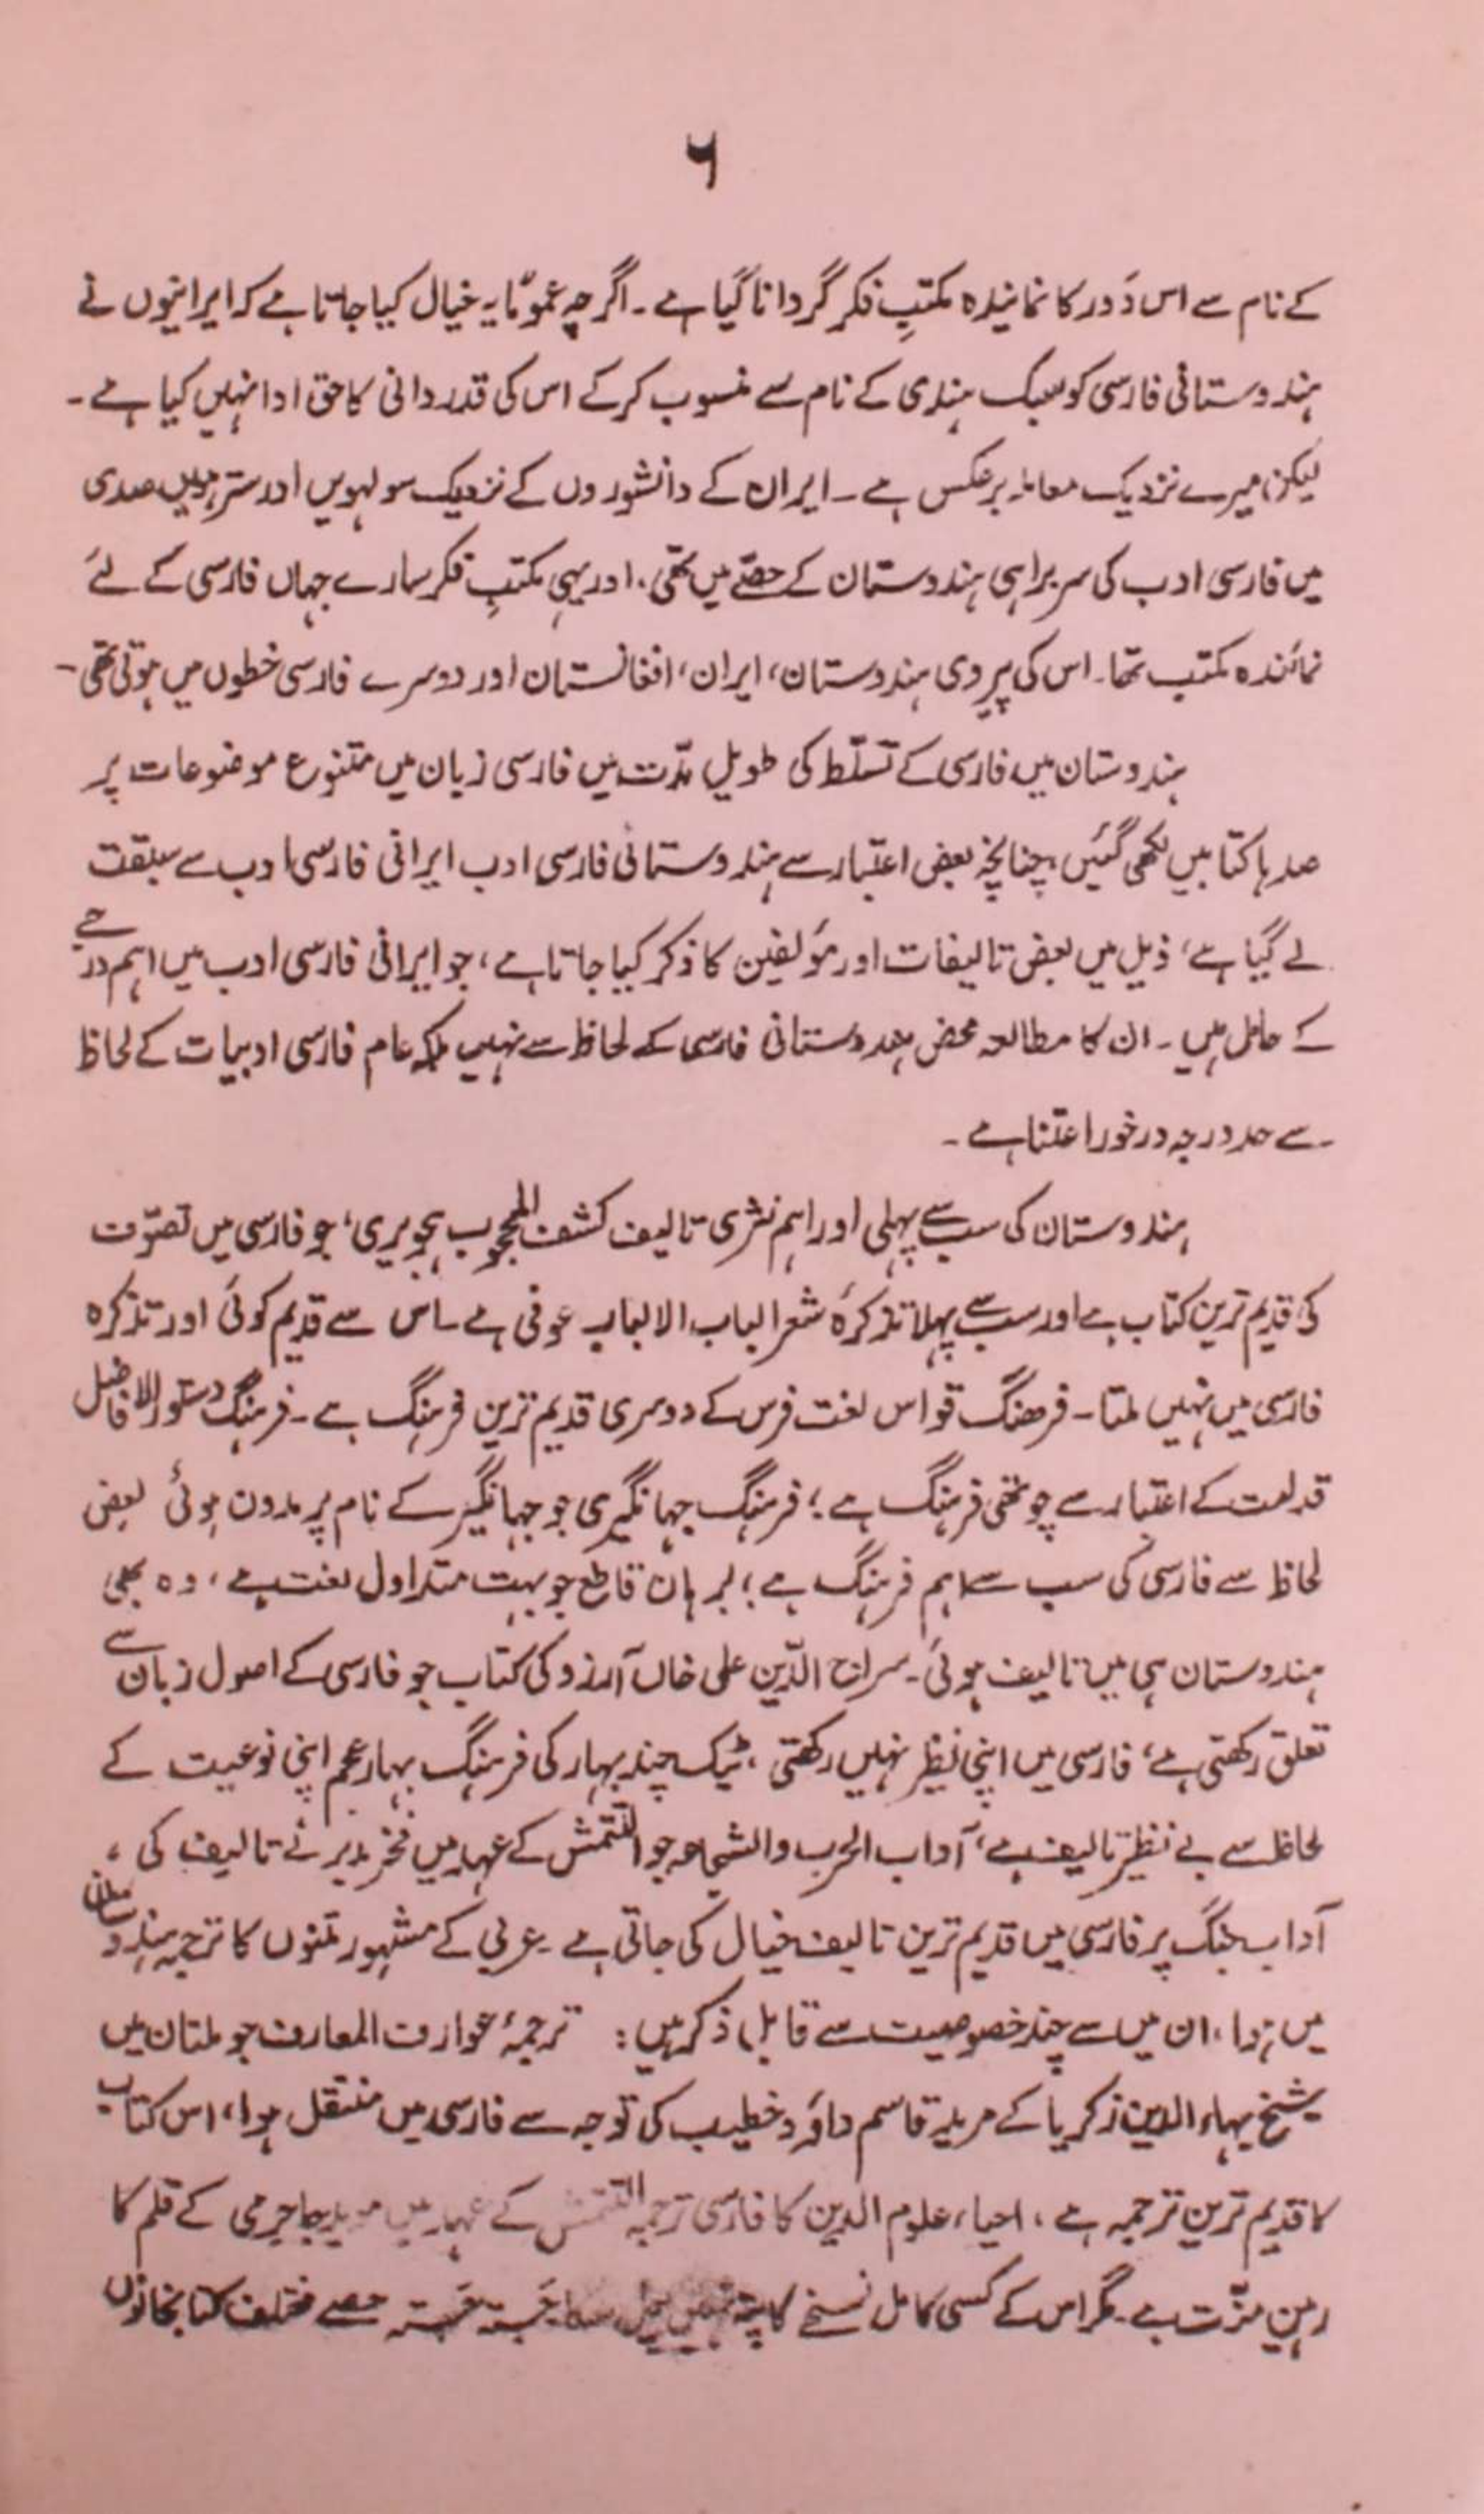 ۶
کے نام سے اس دَور کا نمائندہ مکتبِ فکر گردانا گیا ہے ۔ اگرچہ عموماً یہ خیال کیا جاتا ہے کہ ایرانیوں نے
ہندوستانی فارسی کو سبک ہندی کے نام سے منسوب کرکے اس کی قدردانی کا حق ادا نہیں کیا ہے ۔
لیکن میرے نزدیک معاملہ برعکس ہے ۔ ایران کے دانشوروں کے نزدیک سولہویں اور سترہویں صدی
میں فارسی ادب کی سربراہی ہندوستان کے حصّے میں تھی ۔ اور یہی مکتبِ فکر سارے جہاں فارسی کے لئے
نمائندہ مکتب تھا ۔ اس کی پیروی ہندوستان، ایران، افغانستان اور دوسرے فارسی خطوں میں ہوتی تھی ۔
ہندوستان میں فارسی کے تسلّط کی طویل مدّت میں فارسی زبان میں متنوع موضوعات پر
صدہا کتابیں لکھی گئیں ، چنانچہ بعض اعتبار سے ہندوستانی فارسی ادب ایرانی فارسی ادب سے سبقت
لے گیا ہے، ذیل میں بعض تالیفات اور مؤلفین کا ذکر کیا جاتا ہے، جو ایرانی فارسی ادب میں اہم درجے
کے حامل ہیں ۔ ان کا مطالعہ محض ہندوستانی فارسی کے لحاظ سے نہیں بلکہ عام فارسی ادبیات کے لحاظ
سے حد درجہ درخور اعتنا ہے ۔
ہندوستان کی سب سے پہلی اور اہم نثری تالیف کشف المحجوب ہجویری، جو فارسی میں تصوّف
کی قدیم ترین کتاب ہے اور سب سے پہلا تذکرۂ شعرا لباب الالباب عوفی ہے ۔ اس سے قدیم کوئی اور تذکرہ
فارسی میں نہیں ملتا ۔ فرھنگ قواس لغت فرس کے دوسری قدیم ترین فرہنگ ہے ۔ فرہنگ دستور الافاضل
قدامت کے اعتبار سے چوتھی فرہنگ ہے ؛ فرہنگ جہانگیری جو جہانگیر کے نام پر مدون ہوئی بعض
لحاظ سے فارسی کی سب سے اہم فرہنگ ہے ؛ برہان قاطع جو بہت متداول لغت ہے ، وہ بھی
ہندوستان ہی میں تالیف ہوئی ۔ سراج الدّین علی خاں آرزو کی کتاب جو فارسی کے اصول زبان سے
تعلق رکھتی ہے، فارسی میں اپنی نظیر نہیں رکھتی ، ٹیک چند بہار کی فرہنگ بہار عجم اپنی نوعیت کے
لحاظ سے بے نظیر تالیف ہے، آداب الحرب والشجاعہ جو التتمش کے عہد میں فخر مدبر نے تالیف کی ،
آداب جنگ پر فارسی میں قدیم ترین تالیف خیال کی جاتی ہے ۔ عربی کے مشہور متنوں کا ترجمہ ہندوستان
میں ہوا ، ان میں سے چند خصوصیت سے قابل ذکر ہیں : ترجمۂ عوارف المعارف جو ملتان میں
شیخ بہاء الدین زکریا کے مرید قاسم داؤد خطیب کی توجہ سے فارسی میں منتقل ہوا، اس کتاب
کا قدیم ترین ترجمہ ہے ، احیاء علوم الدین کا فارسی ترجمہ التتمش کے عہد میں موید جاجرمی کے قلم کا
رہینِ منّت ہے ۔ مگر اس کے کسی کامل نسخے کا پتہ نہیں چل سکا جستہ جستہ حصے مختلف کتابخانوں